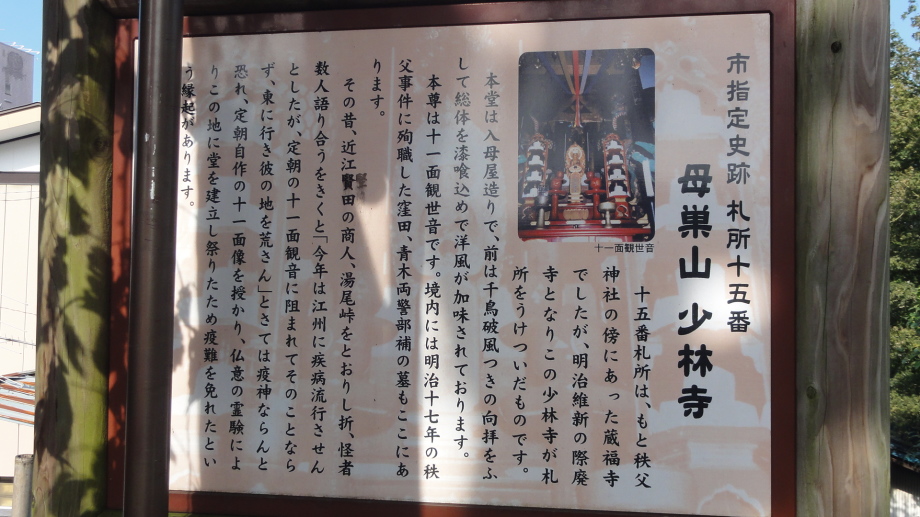 市指定史跡 札所十五番
母巣山 少林寺
十一面観世音
十五番札所は、もと秩父
神社の傍にあった蔵福寺
でしたが、明治維新の際廃
寺となりこの少林寺が札
所をうけついだものです。
本堂は入母屋造りで、前は千鳥破風つきの向拝をふ
して総体を漆喰込めで洋風が加味されております。
本尊は十一面観世音です。境内には明治十七年の秩
父事件に殉職した窪田、青木両警部補の墓もここにあ
ります。
その昔、近江賢田の商人、湯尾峠をとおりし折、怪者
数人語り合うをきくと「今年は江州に疾病流行させん
としたが、定朝の十一面観音に阻まれてそのことなら
ず、東に行き彼の地を荒さん」とさては疫神ならんと
恐れ、定朝自作の十一面像を授かり、仏意の霊験によ
り、この地に堂を建立し祭りたため疫難を免れたとい
う縁起があります。